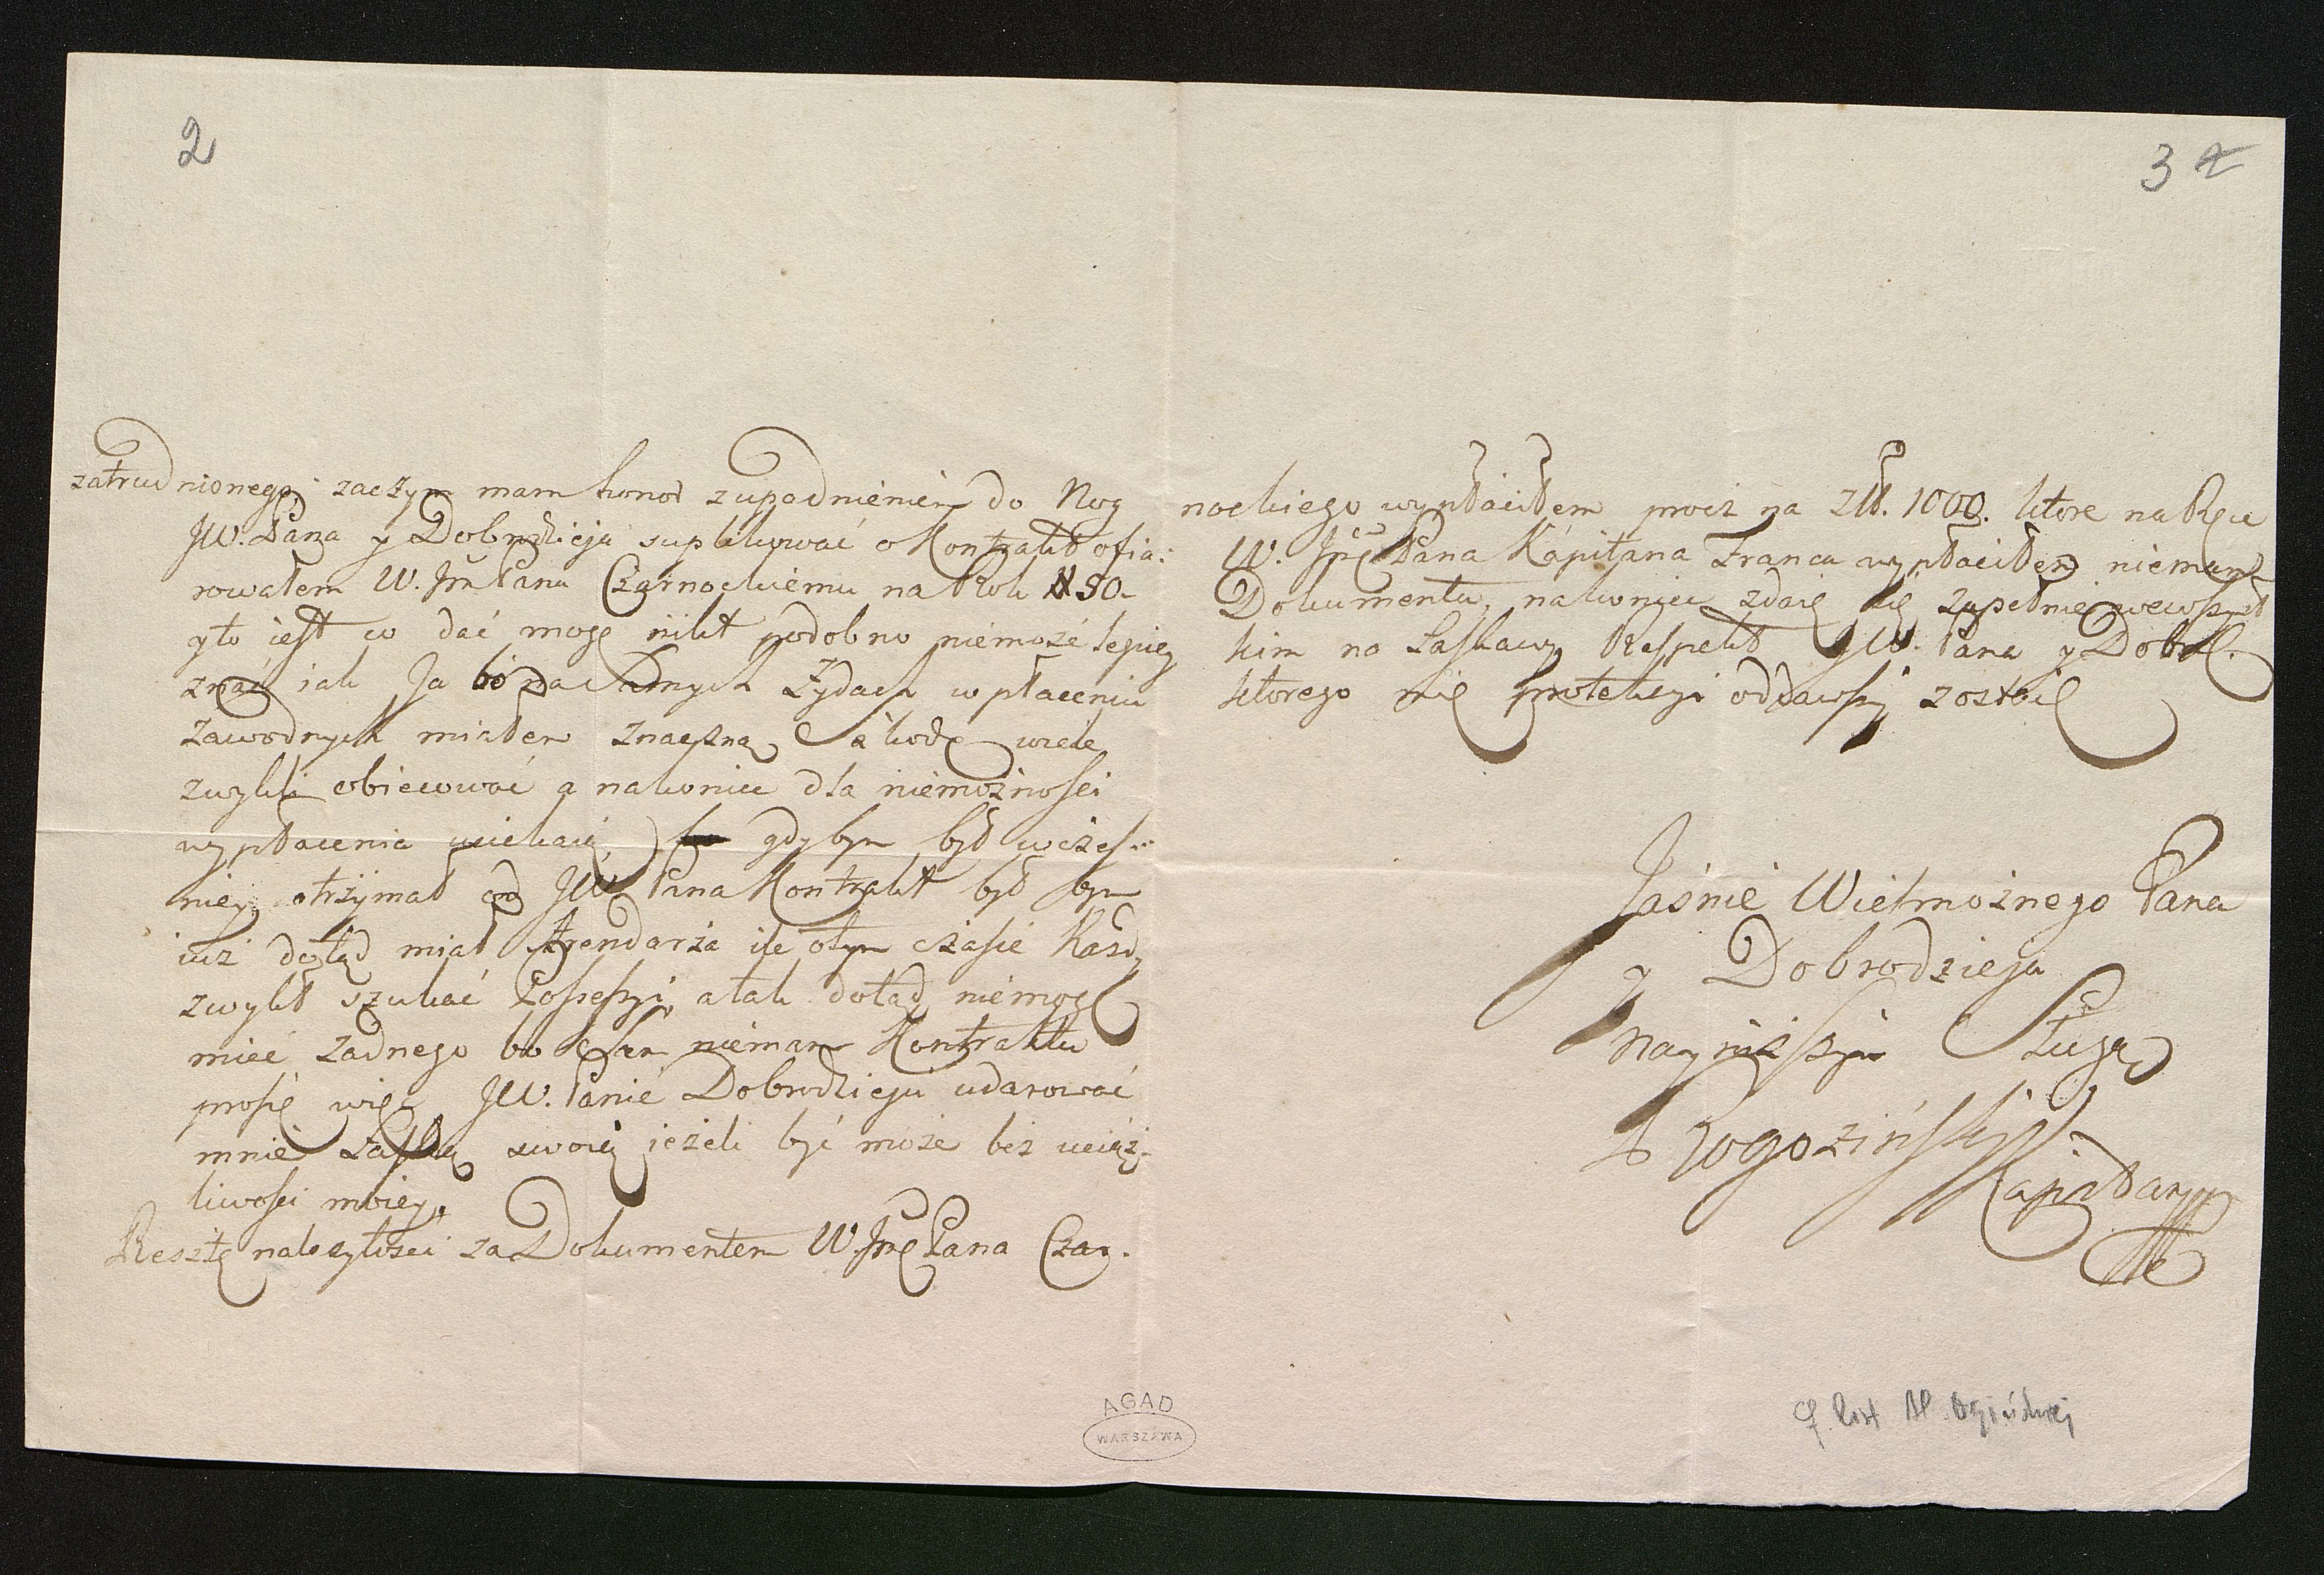 2
zatrudnionego, zaczym mam honor z upadnieniem do Nog
JW. Pana y Dobrodzieja suplikować o Kontrakt ofia:
rowałem W. Jm Panu Czarnockiemu na Rok # 50.
y to iest co dać mogę nikt podobno niemoże lepiey
znać iak Ja bo na Żydach w płaceniu
zawodnych miałem znaczną szkodę wiele
zwykli obiecować a nakoniec dla niemożnosci
wypłacenia uciekaią, gdybym był wczes:
niey otrzymał od JW Pana Kontrakt był bym
iuż dotąd miał Arendarza ile o tym czasie Każdy
zwykł szukać Possessyi, a tak dotąd niemogę
mieć żadnego bo sam niemam Kontraktu
proszę więc JW. Panie Dobrodzieju udarować
mnie Łaską swoią ieżeli być może bez uciąż:
liwosci moiey.
Resztę należytosci za Dokumentem W. Jmę Pana Czar:
3 2
nockiego wypłaciłem procz na złł. 1000. ktore na Ręce
W. Jmę Pana Kapitana Franca wypłaciłem niemam
Dokumentu, nakoniec zdaię się zupełnie we wszyst
kim na Łaskawy Respekt JW. Pana y Dobrd.
ktorego się protekcyi oddawszy zostaię
Jaśnie Wielmożnego Pana
y Dobrodzieja
nayniższym Sługą
Rogoziński
Kapitan
AGAD
WARSZAWA
cf. list Al. Ogińskiej